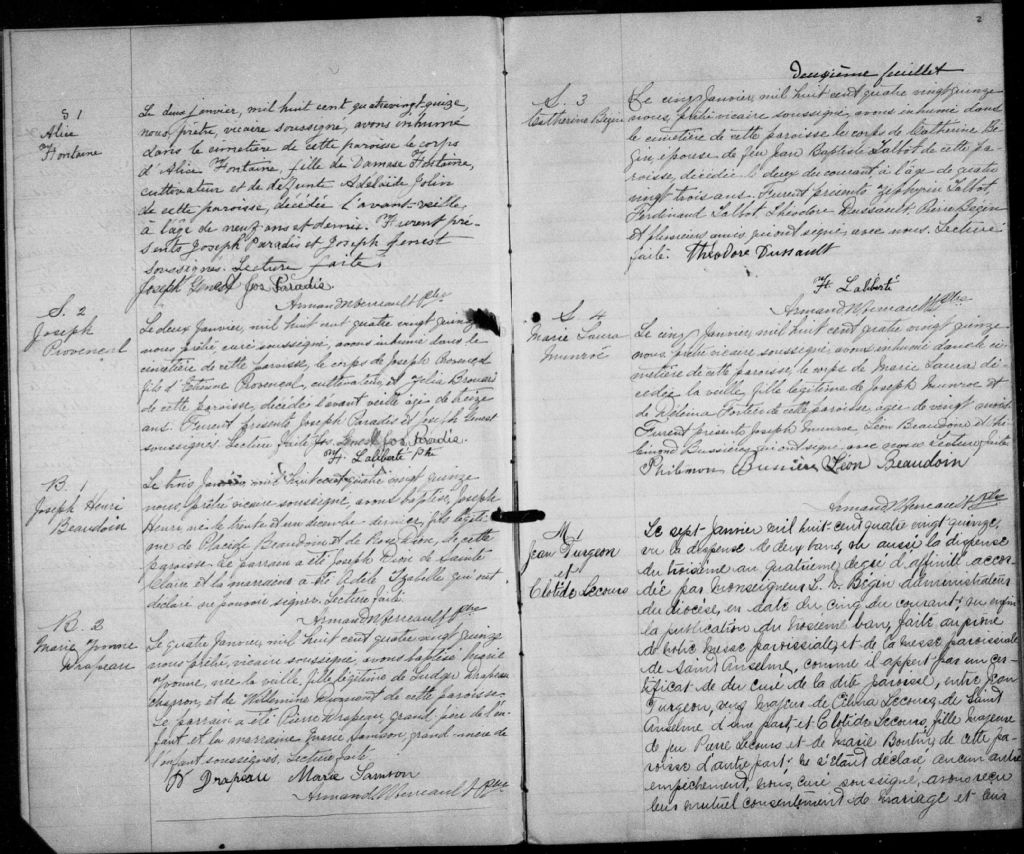 S 1
Alice
Fontaine
Le deux janvier, mil huit cent quatrevingt-quize,
nous, prêtre, vicaire soussigné, avons inhumé
dans le cimetière de cette paroisse le corps
d'Alice Fontaine, fille de Damase Fontaine,
cultivateur et de defunte Adélaide
de cette paroisse, décédée l'avant-veille
à l'âge de neuf ans et demie. Furent pré-
sents Joseph Paradis et Joseph Genest
soussignés. Lecture faite.
Joseph Genest Jos Paradis
Armand Verreault Ptre
S. 2
Joseph
Provençal
Le deux Janvier, mil huit cent quatre vingt quinze
nous prêtre, curé soussigné, avons inhumé dans le
cimetière de cette paroisse, le corps de Joseph Provençal
fils d'Etienne Provençal, cultivateur, et
de cette paroisse, décédé l'avant veille âgé de
ans. Furent présents Joseph Paradis et Joseph Genest
soussignés. Lecture faite Jos. Genest Jos Paradis
F. Laliberté Ptr
B. 1
Joseph Henri
Beaudoin
Le trois Janvier, mil huit cent quatre vingt quinze
nous, prêtre vicaire soussigné, avons baptisé Joseph
Henri né le trente et un decembre dernier, fils légiti-
me de Placide Beaudoin et de Rose Dion, de cette
paroisse. Le parrain a été Joseph Dion de Sainte
Claire et la marraine a été Adele Izabelle qui ont
déclaré ne pouvoir signer. Lecture faite.
Armand Verreault Ptre
B. 2
Marie Yvonne
Drapeau
Le quatre Janvier, mil huit cent quatre vingt quinze
nous prêtre, vicaire soussigné, avons baptisé Marie
Yvonne, née la veille, fille légitime de Ludger Drapeau
charron, et de Willémine Dumont de cette paroisse.
Le parrain a été Pierre Drapeau, grand-père de l'en-
fant et la marraine Marie Samson, grand-mère de
l'enfant soussignés. Lecture faite
P Drapeau Marie Samson
Armand Verreault Ptre
2
Deuxième feuillet
S. 3
Catherine Begin
Le cinq Janvier, mil huit cent quatre vingt quinze
nous, prêtre vicaire soussigné, avons inhumé dans
le cimetière de cette paroisse le corps de Catherine Be-
gin, épouse de feu Jean Baptiste Talbot de cette pa-
roisse, décédée le deux du courant à l'âge de quatre
vingt trois ans. Furent présents Zephirin Talbot,
Ferdinand Talbot Théodore Dussault, Pierre Begin
et plusieurs amis qui ont signé avec nous. Lecture
faite. Théodore Dussault
F. Laliberté
Armand Verreault Ptre
S. 4
Marie Laura
Munroe
Le cinq Janvier, mil huit cent quatre vingt quinze
nous, prêtre vicaire soussigné, avons inhumé dans le ci-
metière de cette paroisse, le corps de Marie Laura dé-
cédée la veille, fille légitime de Joseph Munroe et
de Fortier de cette paroisse, agée de vingt mois.
Furent présents Joseph Munroe, Léon Beaudoin et Phi-
lémon Bussières qui ont signé avec nous Lecture faite
Philémon Bussière Léon Beaudoin
Armand Verreault Ptre
M. 1
Jean Turgeon
et
Clotide Lecours
Le sept Janvier mil huit-cent quatre vingt quinze,
vu la dispense de deux bans, vu aussi la dispense
du troisième au quatrième degré d'affinité accor-
dée par Monseigneur L. N. Begin administrateur
du diocèse, en date du cinq du courant; vu enfin
la publication du troisième ban, faite au prône
de notre messe paroissiale, et de la messe paroissiale
de Saint Anselme, comme il appert par un cer-
tificat de du curé de la dite paroisse, entre Jean
Turgeon, veuf majeur de Célina Lecours, de Saint
Anselme d'une part, et Clotide Lecours, fille majeure
de feu Pierre Lecours et de Marie Boutin, de cette pa-
roisse d'autre part; ne s'étant déclaré aucun autre
empêchement, nous, curé soussigné, avons reçu
leur mutuel consentement de mariage et leur